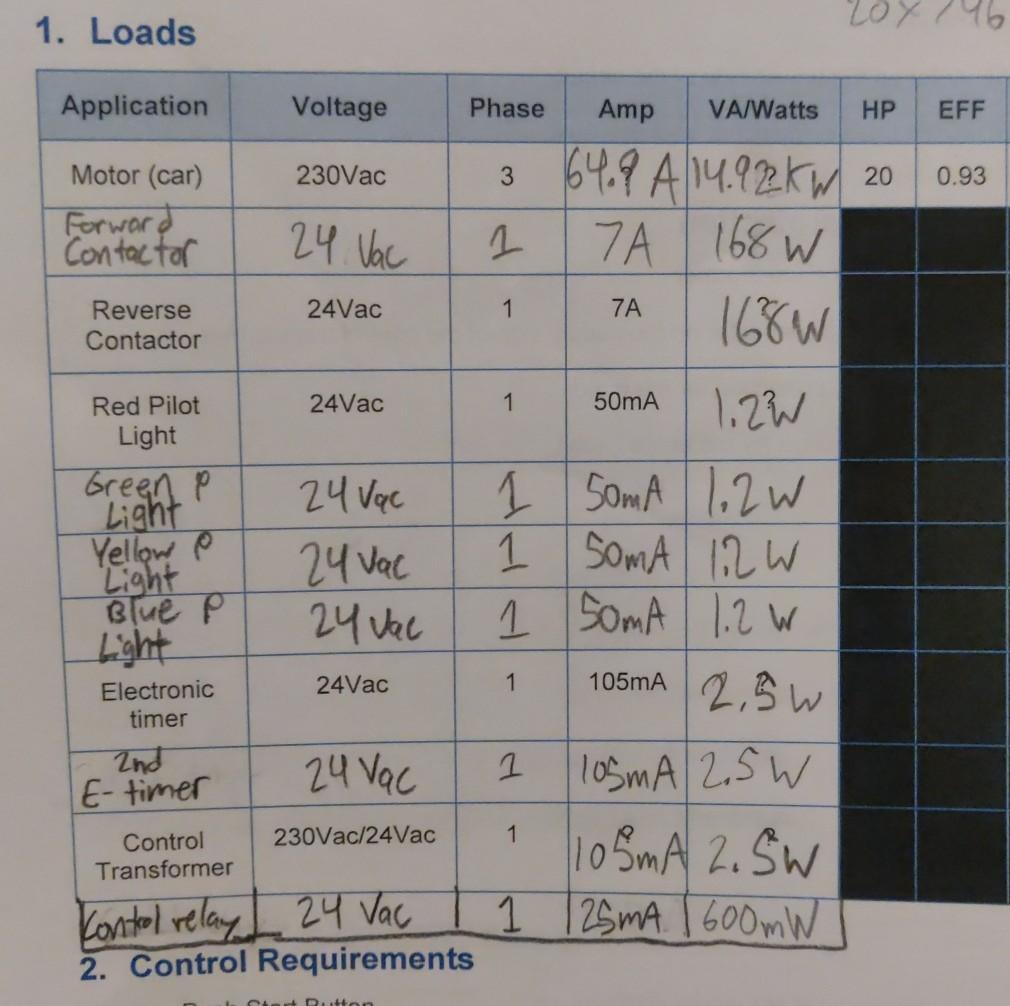 20 x 746
1. Loads
Application Voltage Phase Amp VA/Watts HP EFF
Motor (car) 230Vac 3 64.9 A 14.92KW 20 0.93
Forward
Contactor 24 Vac 1 7A 168 W
Reverse
Contactor 24Vac 1 7A 168W
Red Pilot
Light 24Vac 1 50mA 1.2W
Green P
Light 24 Vac 1 50mA 1.2 W
Yellow P
Light 24 Vac 1 50mA 1.2 W
Blue P
Light 24 Vac 1 50mA 1.2 W
Electronic
timer 24Vac 1 105mA 2.5 W
2nd
E-timer 24 Vac 1 105mA 2.5 W
Control
Transformer 230Vac/24Vac 1 105mA 2.5W
Control relay 24 Vac 1 25mA 600mW
2. Control Requirements
Push Start Button